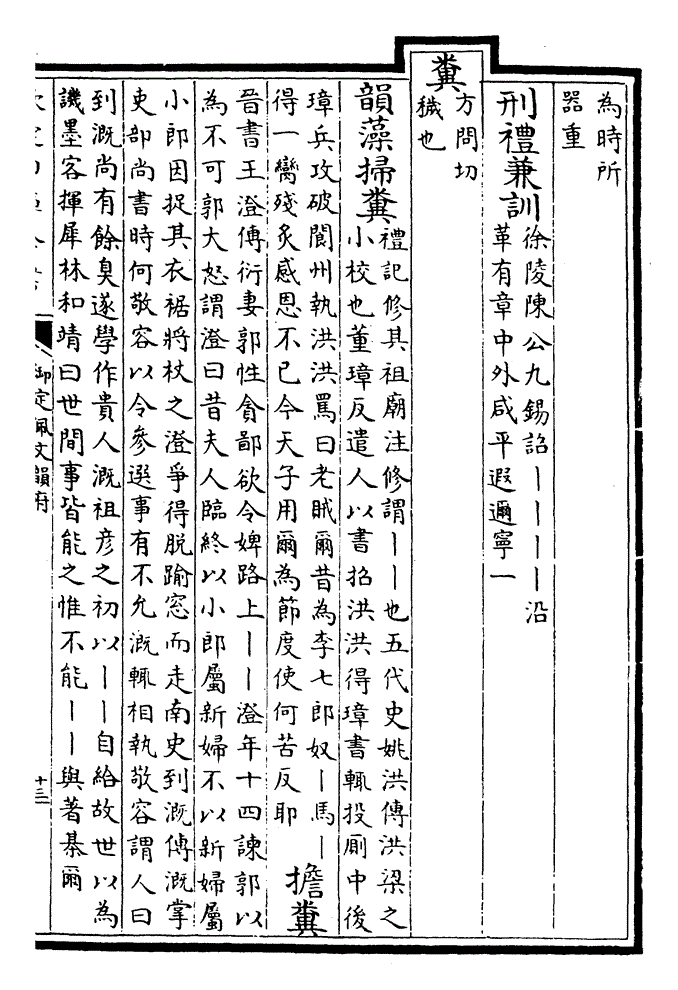 為時所
器重
刑禮兼訓
徐陵陳公九錫詔丨丨丨丨沿
革有章中外咸平遐邇寧一
糞
方問切
穢也
韻藻掃糞
禮記修其祖廟注修謂丨丨也五代史姚洪傳洪梁之
小校也董璋反遣人以書招洪洪得璋書輒投厠中後
璋兵攻破閬州執洪洪罵曰老賊爾昔為李七郎奴丨馬丨
得一臠殘炙感恩不已今天子用爾為節度使何苦反耶
擔糞
晉書王澄傳衍妻郭性貪鄙欲令婢路上丨丨澄年十四諫郭以
為不可郭大怒謂澄曰昔夫人臨終以小郎屬新婦不以新婦屬
小郎因捉其衣裾將杖之澄爭得脫踰窓而走南史到溉傳溉掌
吏部尚書時何敬容以令參選事有不允溉輒相執敬容謂人曰
到溉尚有餘臭遂學作貴人溉祖彦之初以丨丨自給故世以為
譏墨客揮犀林和靖曰世間事皆能之惟不能丨丨與著棊爾
御定佩文韻府
十三